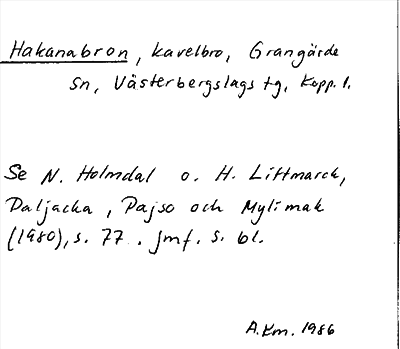 Hakanabron, kavelbro, Grangärde
Sn, Västerbergslags tg, Kopp. l.
Se N. Holmdal o. H. Littmarck,
Daljacka, Pajso och Mylimak
(1980), s. 77. jmf. s. bl.
A.Km. 1986